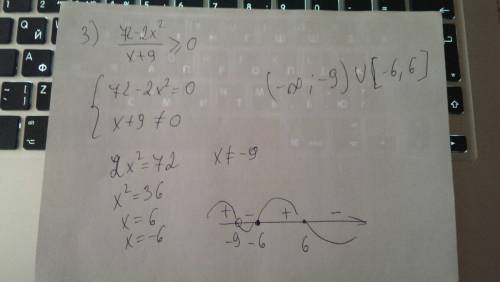 3) (72-2x²)/(x+9) ⩾ 0
{ 72-2x²=0
x+9≠0
(-∞; -9) ∪ [-6, 6]
2x²=72 x≠-9
x²=36
x=6
x=-6
+ - + -
-9 -6 6